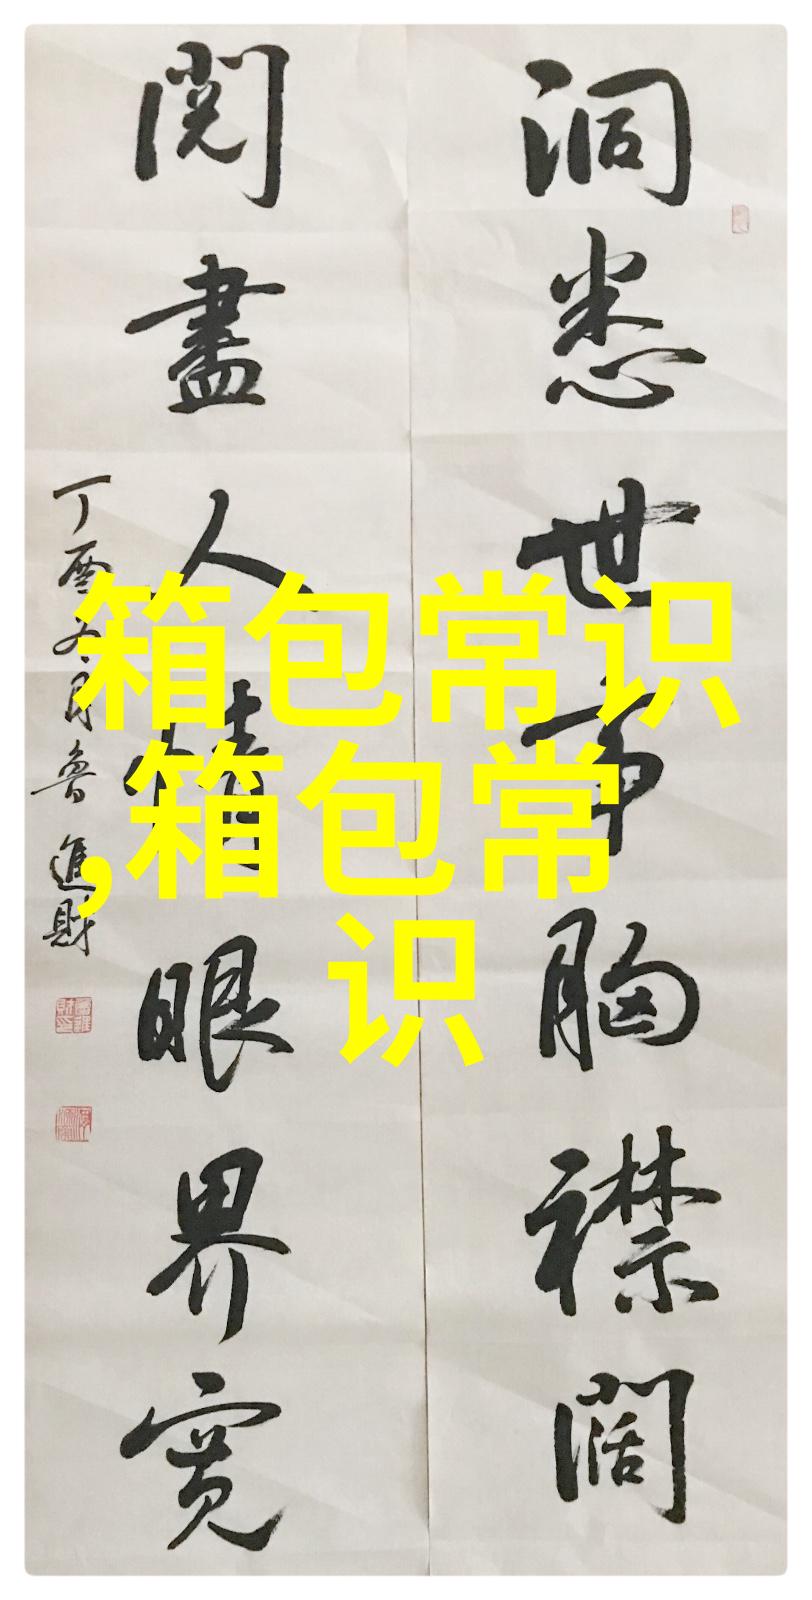 洞悉世事胸襟阔
阅盡人情眼界寬
丁酉冬月魯進財
箱包常识
,箱包常
识